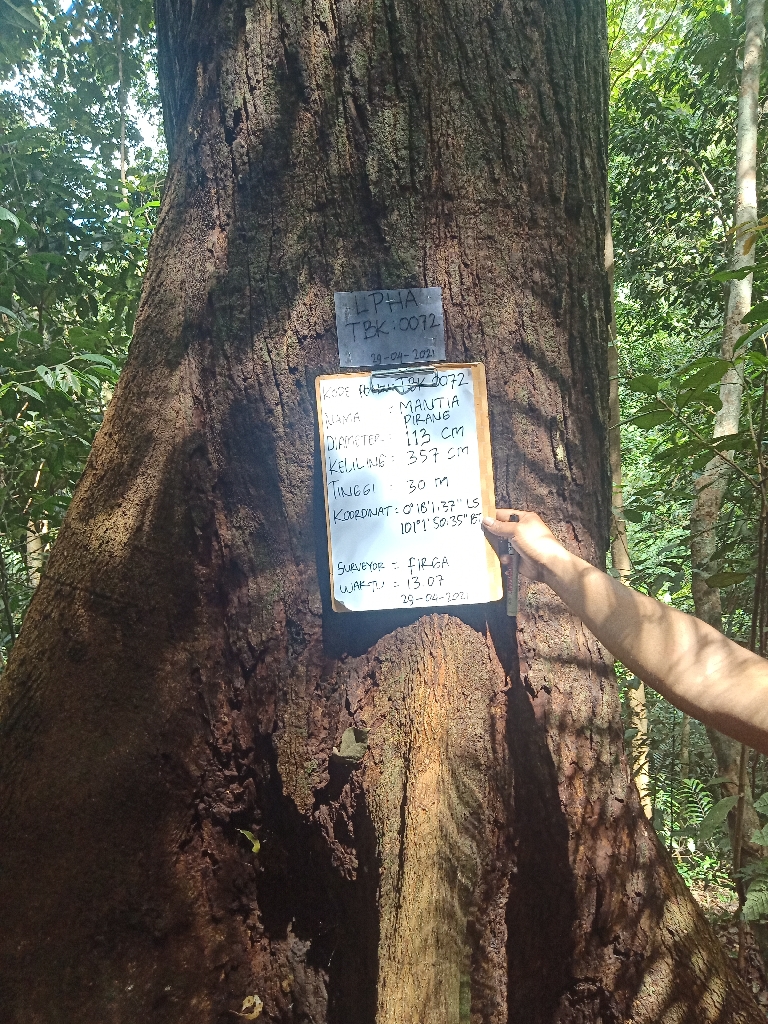 LPHA
TBK:0072
29-04-2021
KODE TBK 0072
NAMA : MANTIA
PIRANG
DIAMETER : 113 CM
KELILING : 357 CM
TINGGI : 30 M
KOORDINAT : 0°18'1.37" LS
101°1'50.35" BT
SURVEYOR = FIRGA
WAKTU = 13.07
29-04-2021